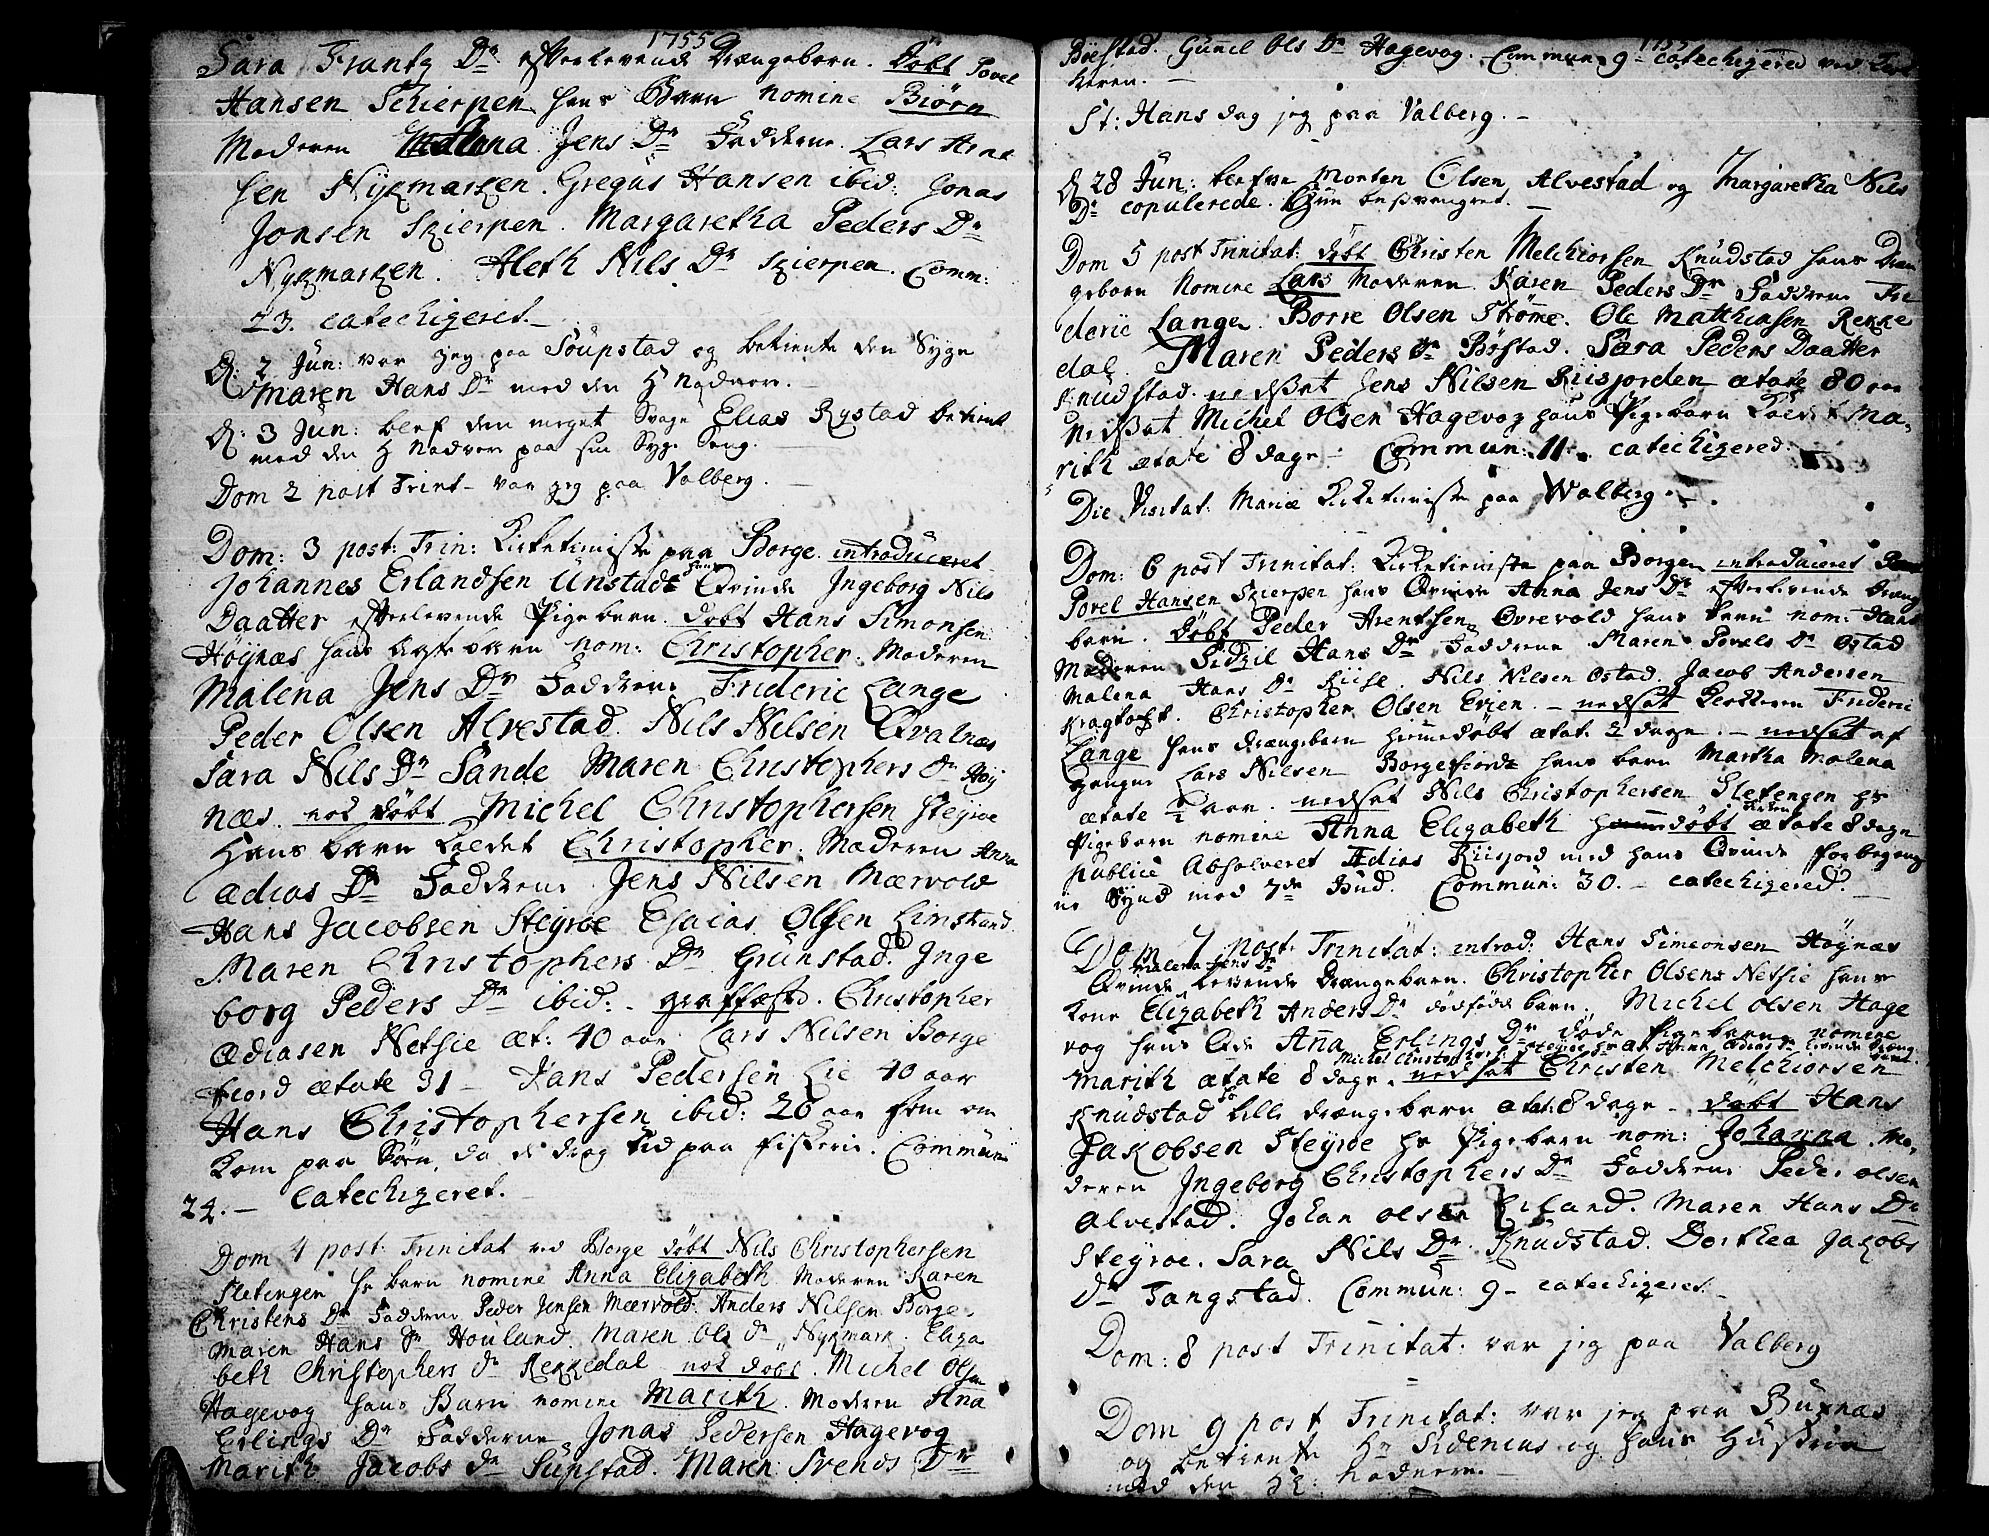 1755
Sara Frantz Dr efterlevende Drængebarn. Døbt Povel
Hansen Schierpen hans Barn nomine Biørn
Moderen Anna Jens Dr Fadderne Lars Arne
sen Nykmarken. Gregus Hansen ibid: Jonas
Jonsen Skierpen. Margaretha Peders Dr
Nykmarken. Aleth Nils Dr Skierpen. Comm:
23. catechizeret.
D. 2 Jun: var jeg paa Soupstad og betiente den Syge
Maren Hans Dr med den H Nadvere.
D. 3 Jun: blef den meget Svage Elias Rystad betient
med den H Nadvere paa sin Syge Seng.
Dom 2 post Trint var jeg paa Valberg.
Dom: 3 post: Trin: Kirketieniste paa Borge. introduceret
Johannes Erlandsen Unstads hans Qvinde Ingeborg Nils
Daatter efterlevende Pigebarn. døbt Hans Simonsen
Høynæs hans ægte barn nom: Christopher. Moderen
Malena Jens Dr Fadderne Frideric Lange
Peder Olsen Alvestad. Nils Nilsen Qvalnæs
Sara Nils Dr Sande Maren Christophers Dr Høy
næs. nok døbt Michel Christophersen Steyroe
Hans barn kaldet Christopher. Moderen Anna
Ædias Dr Fadderne Jens Nilsen Mærvold
Hans Jacobsen Steyroe Esaias Olsen Limstrand
Maren Christophers Dr Grunstad. Inge
borg Peders Dr ibid: graffæsted. Christopher
Ædiasen Netsie æt: 40 aar Lars Nilsen Borge
fiord ætate 31 Hans Pedersen Lie 40 aar
Hans Christophersen ibid: 26 aar som om
kom paa Søen, da de drog hid paa fiskerie. Commun:
24. Catechizeret.
Dom 4 post: Trinitat ved Borge døbt Nils Christophersen
Sletengen hs barn nomine Anna Elizabeth Moderen Karen
Christens Dr Fadderne Peder Jensen Mærvold. Anders Nilsen Borge.
Maren Hans Dr Houland. Maren Ols dr Nykmark. Eliza
beth Christophers dr Rekkedal nok døbt. Michel Olsen
Hagevog hans Barn nomine Marith. Moderen Anna
Erlings Dr Fadderne Jonas Pedersen Hagevog
Marith Jacobs dr Supstad. Maren Svends Dr
1755
Bøstad. Gunnel Ols Dr Hagevog. Commun: 9 catechizered ved
St: Hans dag jeg paa Valberg.
D 28 Jun: blefve Morten Olsen Alvestad og Margaretha Nils
Dr copulerede. Hun besvangret.
Dom 5 post Trinitat: døbt Christen Melchiorsen Knudstad hans Dræn
gebarn Nomine Lars Moderen Karen Peders Dr Fadderne Fri
deric Lange. Borre Olsen Strømme. Ole Matthiasen Rekke
dal. Maren Peders Dr Bøstad. Sara Peders Daatter
Knudstad. nedsat Jens Nilsen Riisjorden ætate 80 aar
Nedsat Michel Olsen Hagevog hans Pigebarn kaldet Ma
rith ætate 8 dage. Commun: 11. catechizered.
Die Visitat. Mariæ Kirketieniste paa Walberg.
Dom: 6 post Trinitat: Kirketieniste paa Borge introduceret
Povel Hansen Skierpen hans Qvinde Anna Jens Dr efterlevende Dreng
barn. Døbt Peder Arentsen Øvrevold hans barn nom: Hans
Moderen Sidzil Hans Dr Fadderne Maren Povels Dr Ostad
Malena Hans Dr Riise. Nils Nilsen Ostad. Jacob Andersen
Kragtoft. Christopher Olsen Evien. nedsat Klokkeren Frideric
Lange hans drængebarn hiemedøbt ætat: 2 dage. nedsat af
gangne Lars Nilsen Borgefiords hans barn Martha Malena
ætate ½ aar. nedsat Nils Christophersen Sletengen hs
Pigebarn nomine Anna Elizabeth ætate 8 dage
publice Absolveret Ædias Riisjord med hans Qvinde for begang
ne Synd mod 7de Bud. Commun: 30. catechizered.
Dom 7 post: Trinitat: introd: Hans Simeonsen Høynæs
Qvinde Malena Jens Dr levende drængebarn. Christopher Olsens Netsie hans
kone Elizabeth Anders Dr dødfødde barn, Michel Olsen Hage
vog hans Anna Erlings Dr døde Pigebarn nomine
Michel Christophers: Steyroe hs Anna Ædias dr levende dræng
barn.
Marith ætate 8 dage. nedsat Christen Melchiorsen
Knudstad lille drængebarn ætat: 8 dage. døbt Hans
Jakobsen Steyroe hs Pigebarn nom: Johanna. Mo
deren Ingeborg Christophers Dr Fadderne Peder Olsen
Alvestad. Johan Olsen Erland. Maren Hans Dr
Steyroe. Sara Nils Dr Knudstad. Dorthea Jakobs
Dr Tangstad. Commun: 9 catechizeret.
Dom: 8 post Trinitat: var jeg paa Valberg
Dom 9 post Trinitat: var jeg paa Buxnæs
og betiente Hr Sidenius og hans Hustrue
med den H: Nadvere.